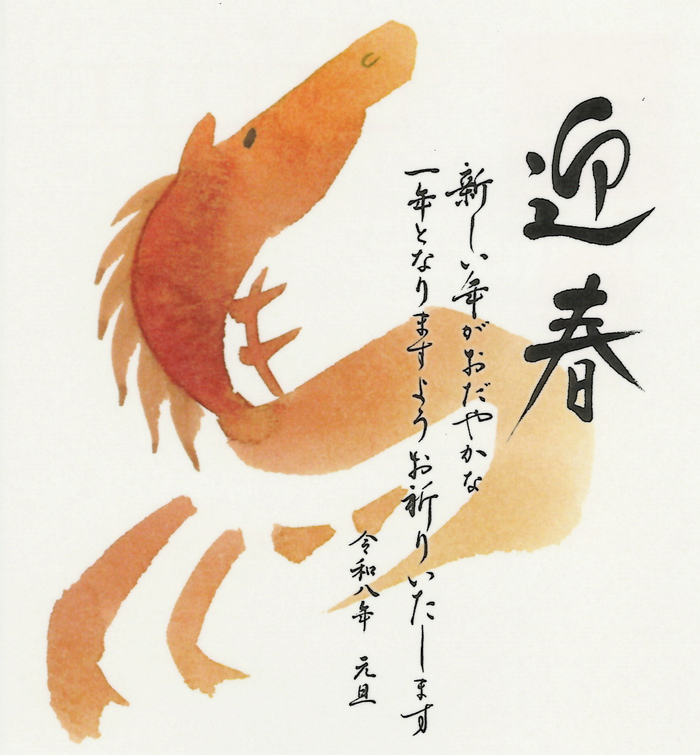 迎春
新しい年がおだやかな
一年となりますようお祈りいたします
令和八年　元旦